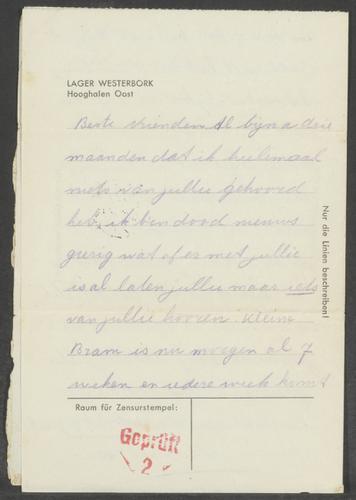 LAGER WESTERBORK
Hooghalen Oost
Beste vrienden Al bijna drie
maanden dat ik heelemaal
niets van jullie gehoord
heb, ik ben dood nieuws
gierig wat of er met jullie
is al laten jullie maar iets
van jullie hooren. Kleine
Bram is nu morgen al 7
weken en iedere week komt
Nur die Linien beschreiben!
Raum für Zensurstempel:
Geprüft
2